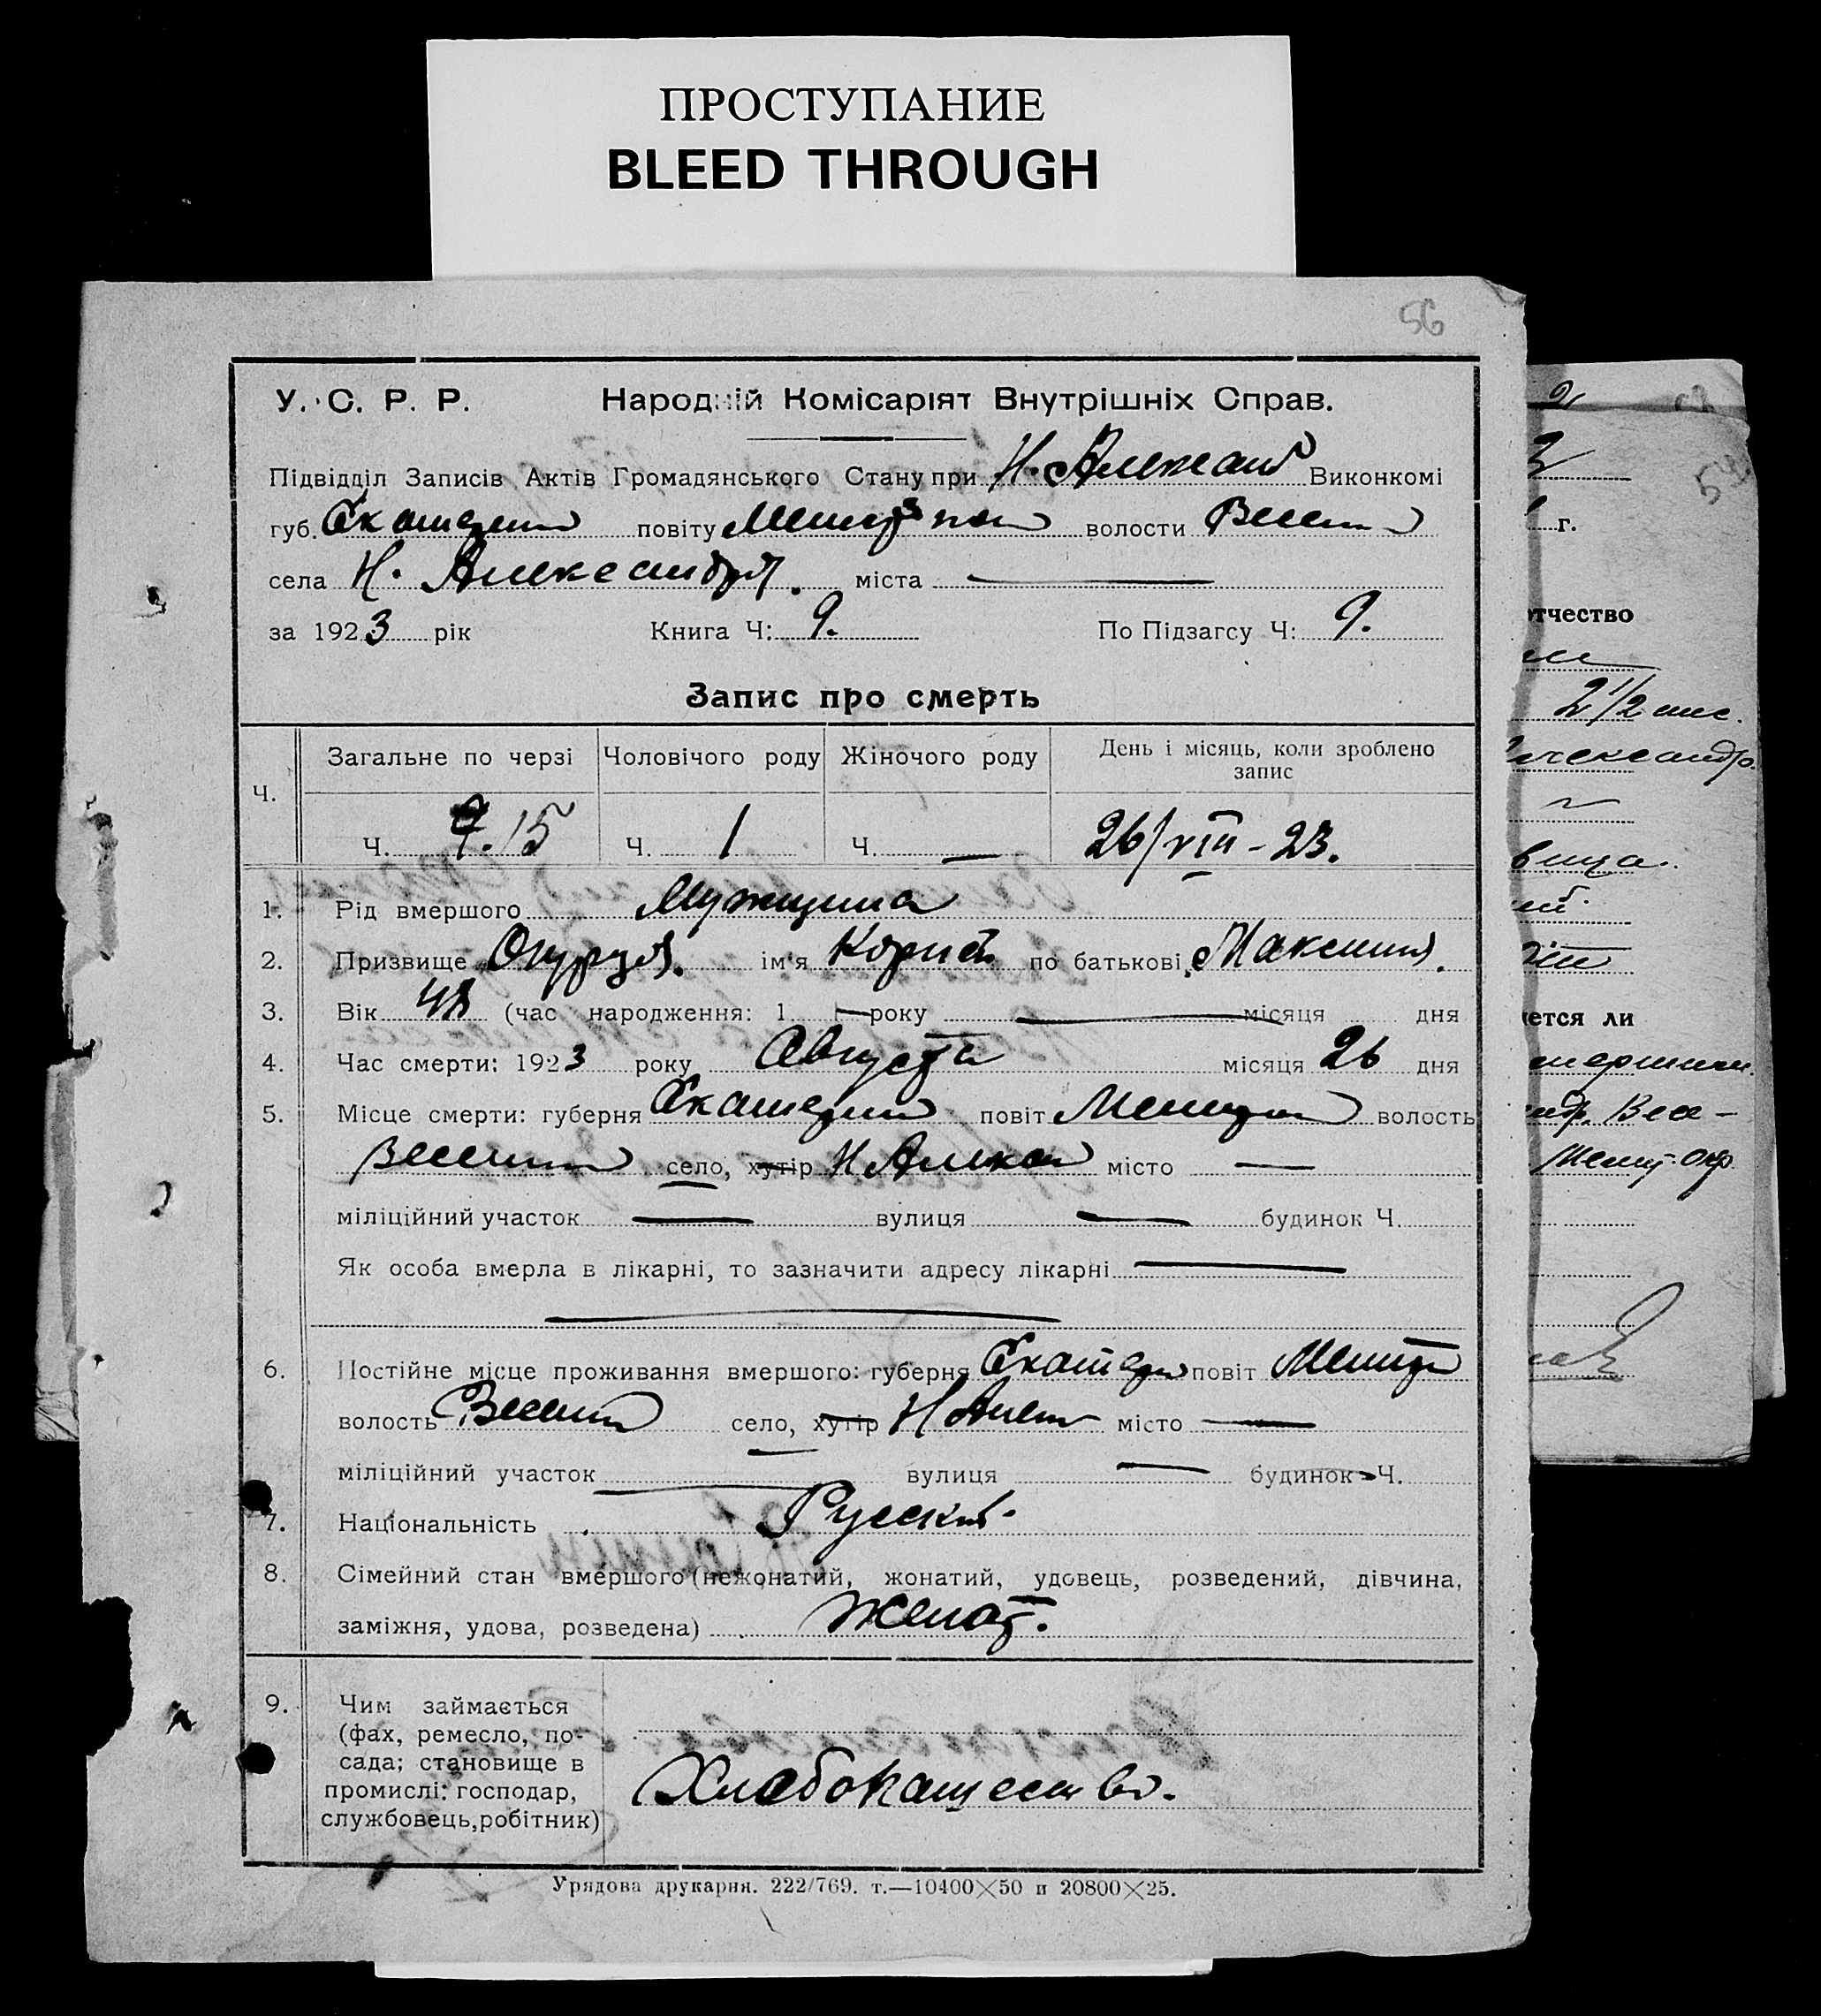 ПРОСТУПАНИЕ
BLEED THROUGH
56
У. С. Р. Р. Народній Комісаріят Внутрішніх Справ.
Підвідділ Записів Актів Громадянського Стану при Н. Александ Виконкомі
губ. Екатерин повіту Мелитопол волости Веселн
села Н. Александря. міста —
за 1923 рік Книга Ч: 9. По Підзагсу Ч: 9.
Запис про смерть
Ч. Загальне по черзі Чоловічого роду Жіночого роду День і місяць, коли зроблено запис
Ч. 15 Ч. 1 Ч. — 26/VIII-23.
1. Рід вмершого Мужщина
2. Призвище ім'я по батькові Максимов.
3. Вік 48 (час народження: 1 — року — місяця дня
4. Час смерти: 1923 року Августа місяця 26 дня
5. Місце смерти: губерня Екатерин повіт Мелитоп волость
Веселин село, хутір Н Алекса місто —
міліційний участок — вулиця — будинок Ч.
Як особа вмерла в лікарні, то зазначити адресу лікарні —
6. Постійне місце проживання вмершого: губерня Екатерин повіт Мелит
волость Веселин село, хутір Н Алек місто —
міліційний участок — вулиця — будинок Ч.
7. Національність Русский.
8. Сімейний стан вмершого (нежонатий, жонатий, удовець, розведений, дівчина,
заміжня, удова, розведена) Женат.
9. Чим займається
(фах, ремесло, по-
сада; становище в
промислі: господар,
службовець, робітник)
Хлебопашество.
Урядова друкарня. 222/769. т.—10400×50 и 20800×25.
53
г.
тчество
2 1/2 мес.
лександр.
ется ли
Мелит. окр.